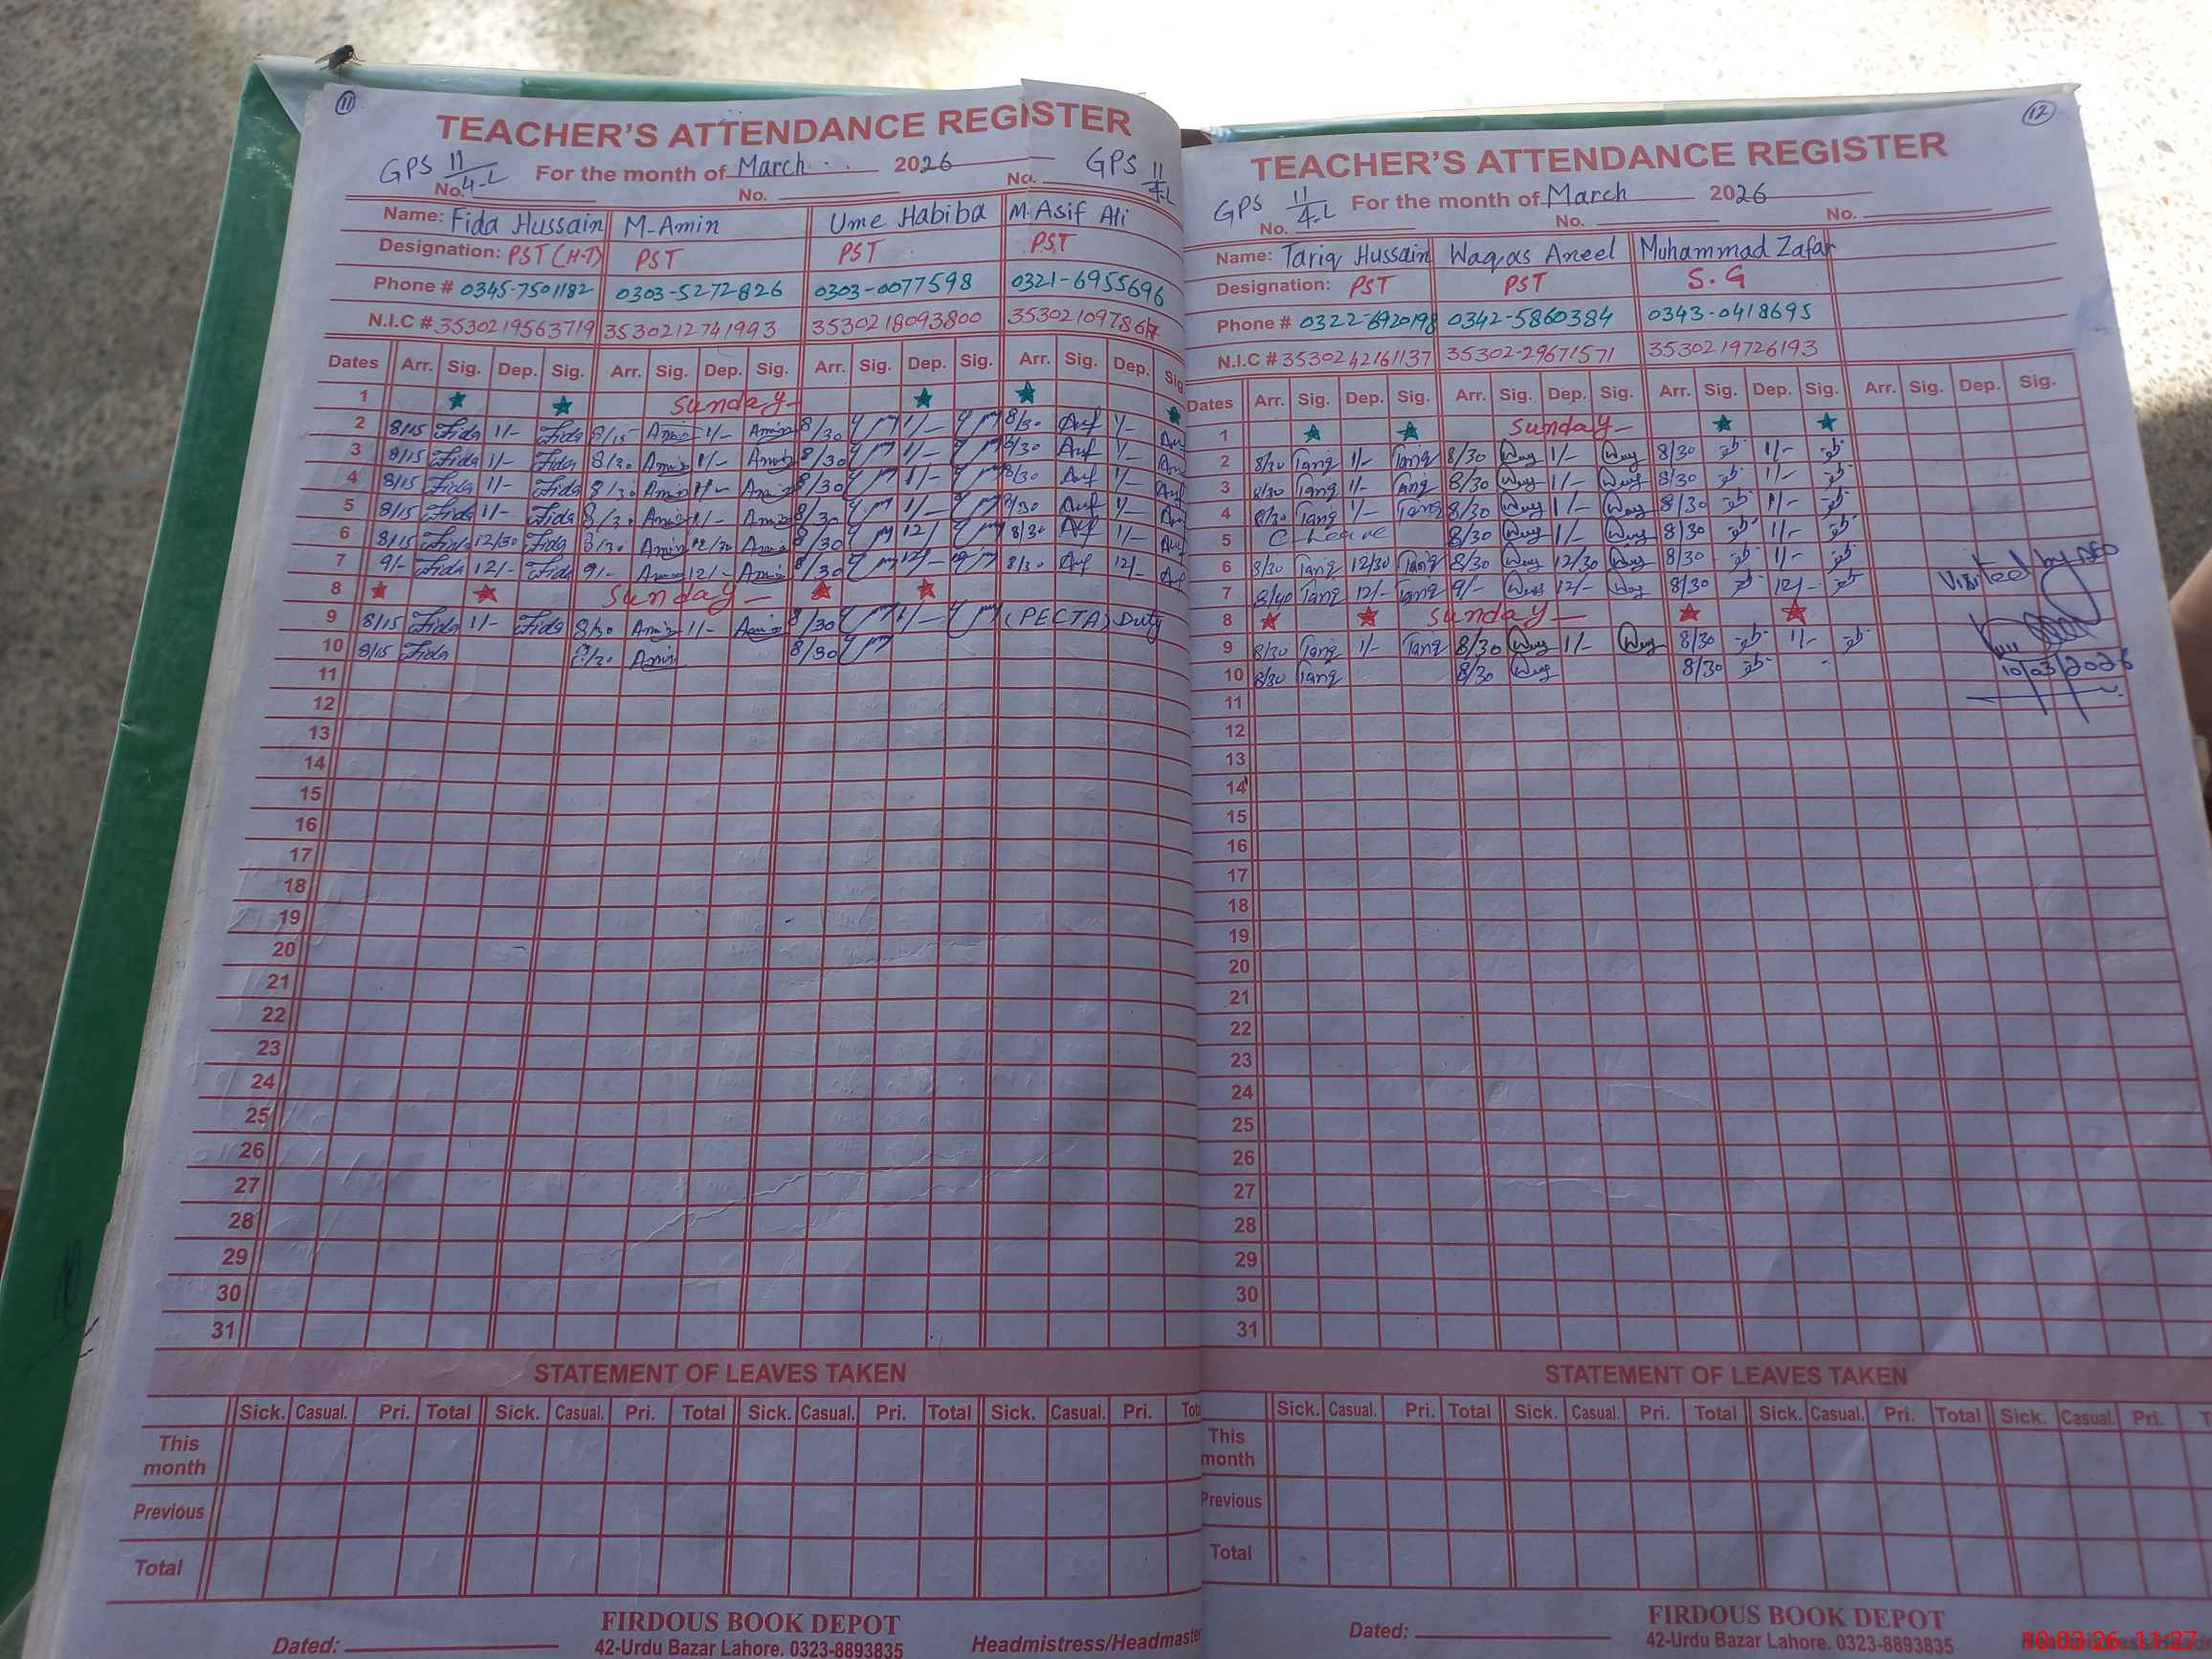 11
TEACHER'S ATTENDANCE REGISTER
GPS 11/4-L For the month of March 2026 GPS 11/4-L
No. No. No.
Name: Fida Hussain M-Amin Ume Habiba M. Asif Ali
Designation: PST (H-T) PST PST PST
Phone # 0345-7501182 0303-5272826 0303-0077598 0321-6955696
N.I.C # 3530219563719 3530212741993 3530218093800
Dates Arr. Sig. Dep. Sig. Arr. Sig. Dep. Sig. Arr. Sig. Dep. Sig. Arr. Sig. Dep. Sig
1 Sunday
2 8/15 Fida 1/- Fida 8/15 Amin 1/- Amin 8/30 1/- 8/30 1/-
3 8/15 Fida 1/- Fida 8/30 Amin 1/- Amin 8/30 1/- 8/30 1/-
4 8/15 Fida 1/- Fida 8/30 Amin 1/- Amin 8/30 1/- 8/30 1/-
5 8/15 Fida 1/- Fida 8/30 Amin 1/- Amin 8/30 1/- 8/30 1/-
6 8/15 Fida 12/30 Fida 8/30 Amin 12/30 Amin 8/30 12/ 8/30 1/-
7 9/- Fida 12/- Fida 9/- Amin 12/- Amin 8/30 12/- 8/30 12/-
8 Sunday
9 8/15 Fida 1/- Fida 8/30 Amin 1/- Amin 8/30 1/- (PECTA) Duty
10 8/15 Fida 8/30 Amin 8/30
11
12
13
14
15
16
17
18
19
20
21
22
23
24
25
26
27
28
29
30
31
STATEMENT OF LEAVES TAKEN
Sick. Casual. Pri. Total Sick. Casual. Pri. Total Sick. Casual. Pri. Total Sick. Casual. Pri. Tota
This month
Previous
Total
Dated:
FIRDOUS BOOK DEPOT
42-Urdu Bazar Lahore. 0323-8893835
Headmistress/Headmaste
12
TEACHER'S ATTENDANCE REGISTER
GPS 11/4-L For the month of March 2026
No. No. No.
Name: Tariq Hussain Waqas Aneel Muhammad Zafar
Designation: PST PST S.G
Phone # 0322-6920198 0342-5860384 0343-0418695
N.I.C # 3530242161137 35302-29671571 3530219726193
Dates Arr. Sig. Dep. Sig. Arr. Sig. Dep. Sig. Arr. Sig. Dep. Sig. Arr. Sig. Dep. Sig.
1 Sunday
2 8/30 Tariq 1/- Tariq 8/30 Waq 1/- Waq 8/30 1/-
3 8/30 Tariq 1/- Tariq 8/30 Waq 1/- Waq 8/30 1/-
4 8/30 Tariq 1/- Tariq 8/30 Waq 1/- Waq 8/30 1/-
5 C-Leave 8/30 Waq 1/- Waq 8/30 1/-
6 8/30 Tariq 12/30 Tariq 8/30 Waq 12/30 Waq 8/30 1/-
7 8/40 Tariq 12/- Tariq 9/- Waq 12/- Waq 8/30 12/-
8 Sunday
9 8/30 Tariq 1/- Tariq 8/30 Waq 1/- Waq 8/30 1/-
10 8/30 Tariq 8/30 Waq 8/30
Visited by
10/03/2026
11
12
13
14
15
16
17
18
19
20
21
22
23
24
25
26
27
28
29
30
31
STATEMENT OF LEAVES TAKEN
Sick. Casual. Pri. Total Sick. Casual. Pri. Total Sick. Casual. Pri. Total Sick. Casual. Pri. T
This month
Previous
Total
Dated:
FIRDOUS BOOK DEPOT
42-Urdu Bazar Lahore. 0323-8893835
10-03-26 11:27